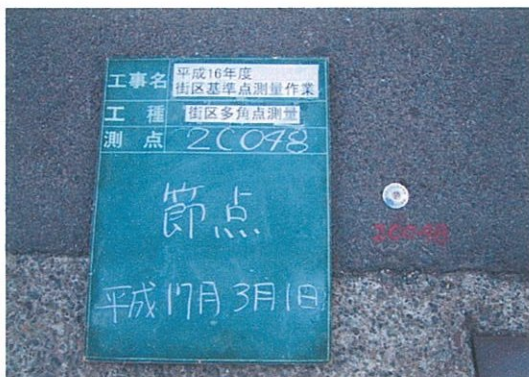 工事名 平成16年度
街区基準点測量作業
工種 街区多角点測量
測点 2C048
節点
平成17月3月1日
2C048